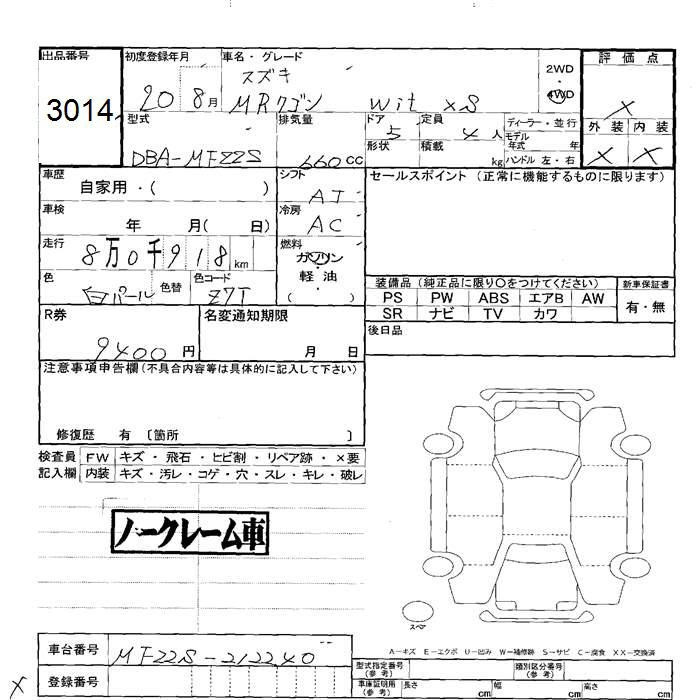 出品番号
3014
初度登録年月
20 8月
車名・グレード
スズキ
MRワゴン Wit XS
2WD
4WD
評価点
X
外装 内装
X X
型式
DBA-MF22S
排気量
660cc
ドア
5
形状
定員
4人
積載
kg
ディーラー・並行
モデル
年式 年
ハンドル 左・右
車歴
自家用・( )
シフト
AT
セールスポイント (正常に機能するものに限ります)
車検
年 月( 日)
冷房
AC
走行
8万0千918km
燃料
ガソリン
軽油
( )
色
白パール
色替
色コード
Z7T
装備品(純正品に限り○をつけてください)
新車保証書
PS PW ABS エアB AW
有・無
SR ナビ TV カワ
R券
9400円
名変通知期限
月 日
後日品
注意事項申告欄(不具合内容等は具体的に記入して下さい)
修復歴 有 〔箇所 〕
検査員 FW キズ・飛石・ヒビ割・リペア跡・×要
記入欄 内装 キズ・汚レ・コゲ・穴・スレ・キレ・破レ
ノークレーム車
スペア
A-キズ E-エクボ U-凹み W-補修跡 S-サビ C-腐食 XX-交換済
車台番号
MF22S-212240
登録番号
X
型式指定番号
(参考)
類別区分番号
(参考)
車庫証明用
(参考)
長さ cm
幅 cm
高さ cm